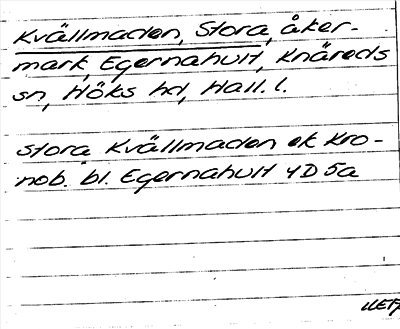 Kvällmaden, Stora, åker-
mark, Egernahult, Knäreds
sn, Höks hd, Hall. l.
Stora Kvällmaden ek Kro-
nob. bl. Egernahult 4D 5a